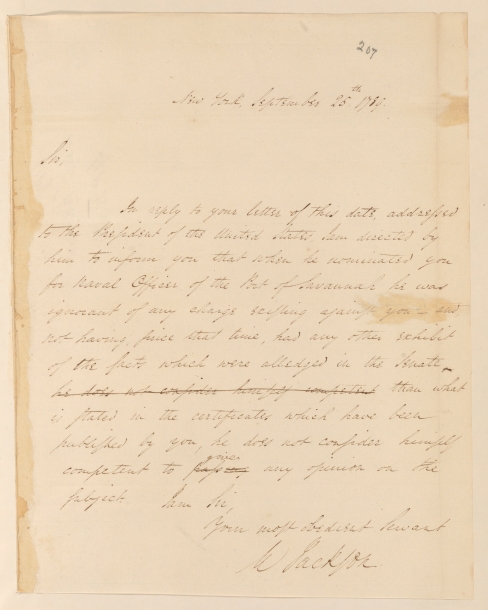 207
New York, September 25th 1789.
Sir,
In reply to your letter of this date, addressed
to the President of the United States, I am directed by
him to inform you that when he nominated you
for Naval Officer of the Port of Savannah he was
ignorant of any charge existing against you – and
not having, since that time, had any other exhibit
of the facts which were alledged in the Senate –
he does not consider himself competent than what
is stated in the certificates which have been
published by you, he does not consider himself
give
competent to any opinion on the
subject. I am Sir,
Your most obedient Servant
W Jackson.